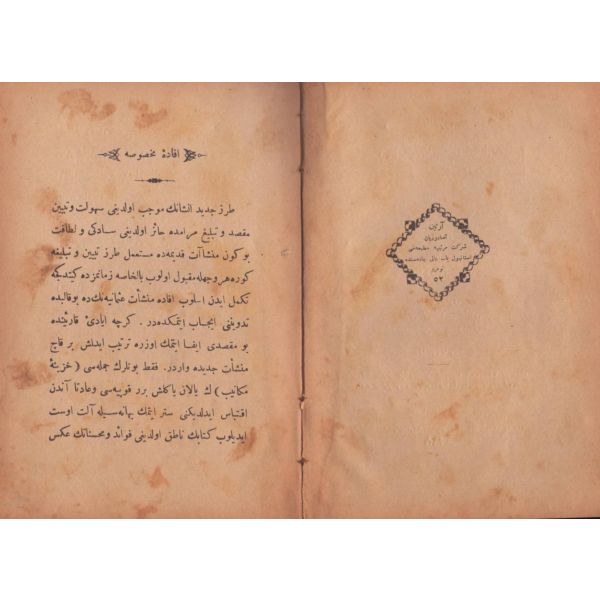 آرتین
آصادوریان
شركت مرتبیه مطبعه‌سی
استانبول باب عالی جاده‌سنده
نومرو
٥٢
افادهٔ مخصوصه
طرز جدید انشانك موجب اولدیغی سهولت و تبیین
مقصد و تبلیغ مرامده حائز اولدیغی سادكی و لطافت
بوكون منشآت قدیمه‌ده مستعمل طرز تبیین و تبلیغه
كوره هر وجهله مقبول اولوب بالخاصه زمانمزده كیتدیكجه
تكمل ایدن اسلوب افاده منشآت عثمانیه‌نك ده بو قالبده
تدویننی ایجاب ایتمكده‌در . كرچه ایادئ قارئینده
بو مقصدی ایفا ایتمك اوزره ترتیب ایدلمش بر قاچ
منشآت جدیده واردر . فقط بونلرك جمله‌سی ( خزینهٔ
مكاتیب ) ك یالان یاكلش برر قوپیه‌سی و عادتا آندن
اقتباس ایدلدیكنی ستر ایتمك بهانه‌سیله آلت اوست
ایدیلوب كتابك ناطق اولدیغی فوائد و محسناتك عكس